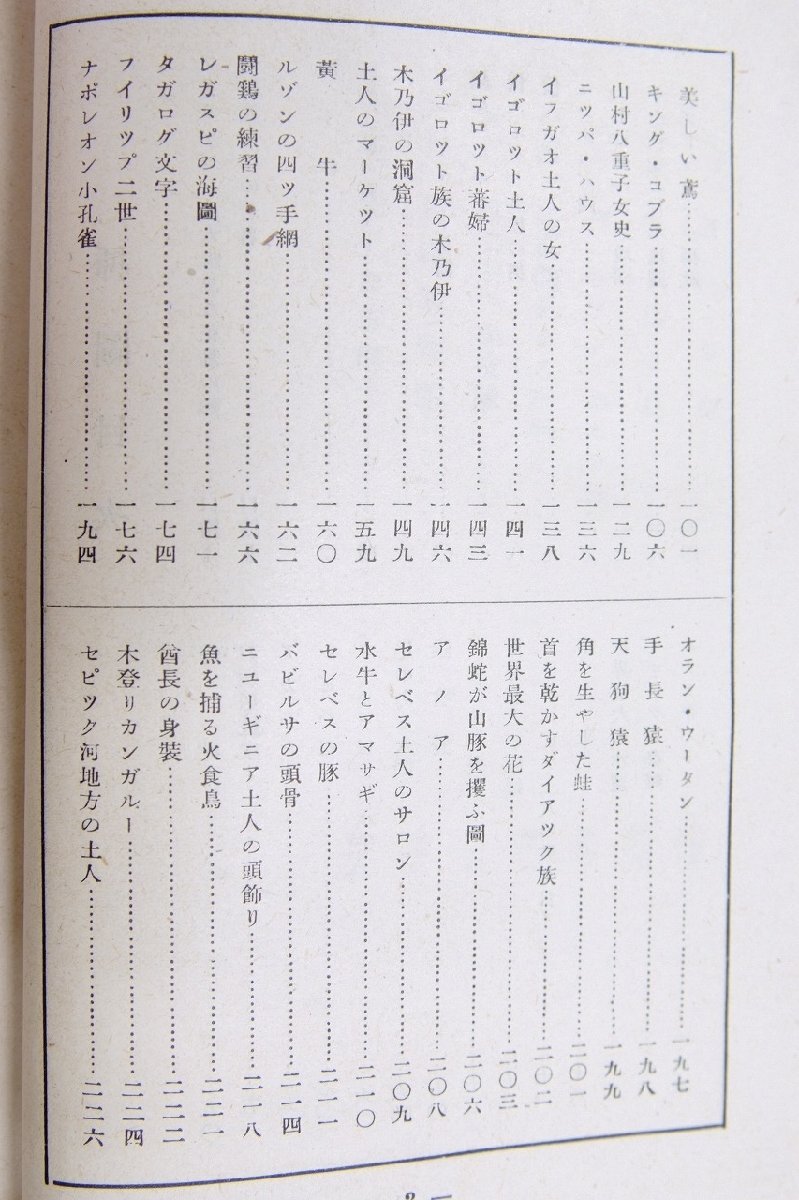 美しい鳶……一〇一
キング・コブラ……一〇六
山村八重子女史……一二九
ニツパ・ハウス……一三六
イフガオ土人の女……一三八
イゴロツト土人……一四一
イゴロツト蕃婦……一四三
イゴロツト族の木乃伊……一四六
木乃伊の洞窟……一四九
土人のマーケツト……一五九
黃牛……一六〇
ルゾンの四ツ手網……一六二
闘鶏の練習……一六六
レガスピの海圖……一七一
タガログ文字……一七四
フイリツプ二世……一七六
ナポレオン小孔雀……一九四
オラン・ウータン……一九七
手長猿……一九八
天狗猿……一九九
角を生やした蛙……二〇一
首を乾かすダイアツク族……二〇二
世界最大の花……二〇三
錦蛇が山豚を攫ふ圖……二〇六
アノア……二〇八
セレベス土人のサロン……二〇九
水牛とアマサギ……二一〇
セレベスの豚……二一一
バビルサの頭骨……二一四
ニユーギニア土人の頭飾り……二一八
魚を捕る火食鳥……二二一
酋長の身裝……二二二
木登りカンガルー……二二四
セピツク河地方の土人……二二六